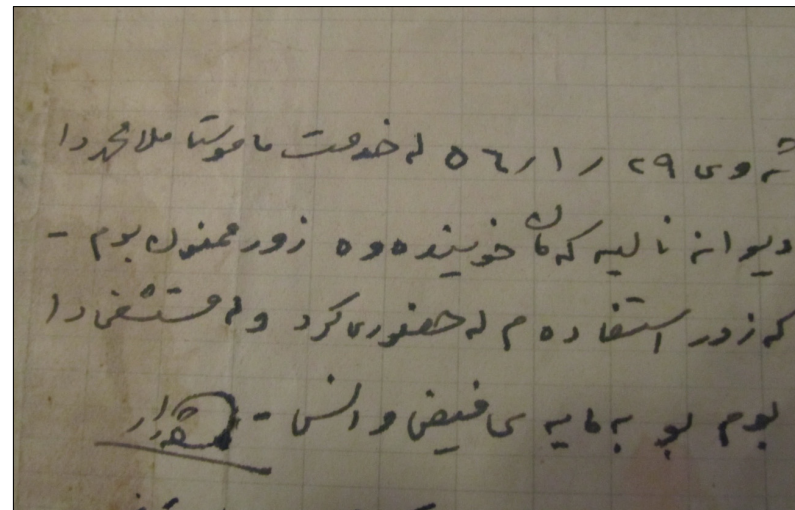 شەوی ٢٩ / ١ / ٥٦ لە خدمت ماموستا ملا محمد دا
دیوانە نالیە کەمان خویندەوە زور ممنون بوم -
کە زور استفادەم لە حضوری کرد ولە مستشفی دا
بوم بو بە مایەی فیض و انس - هەژار